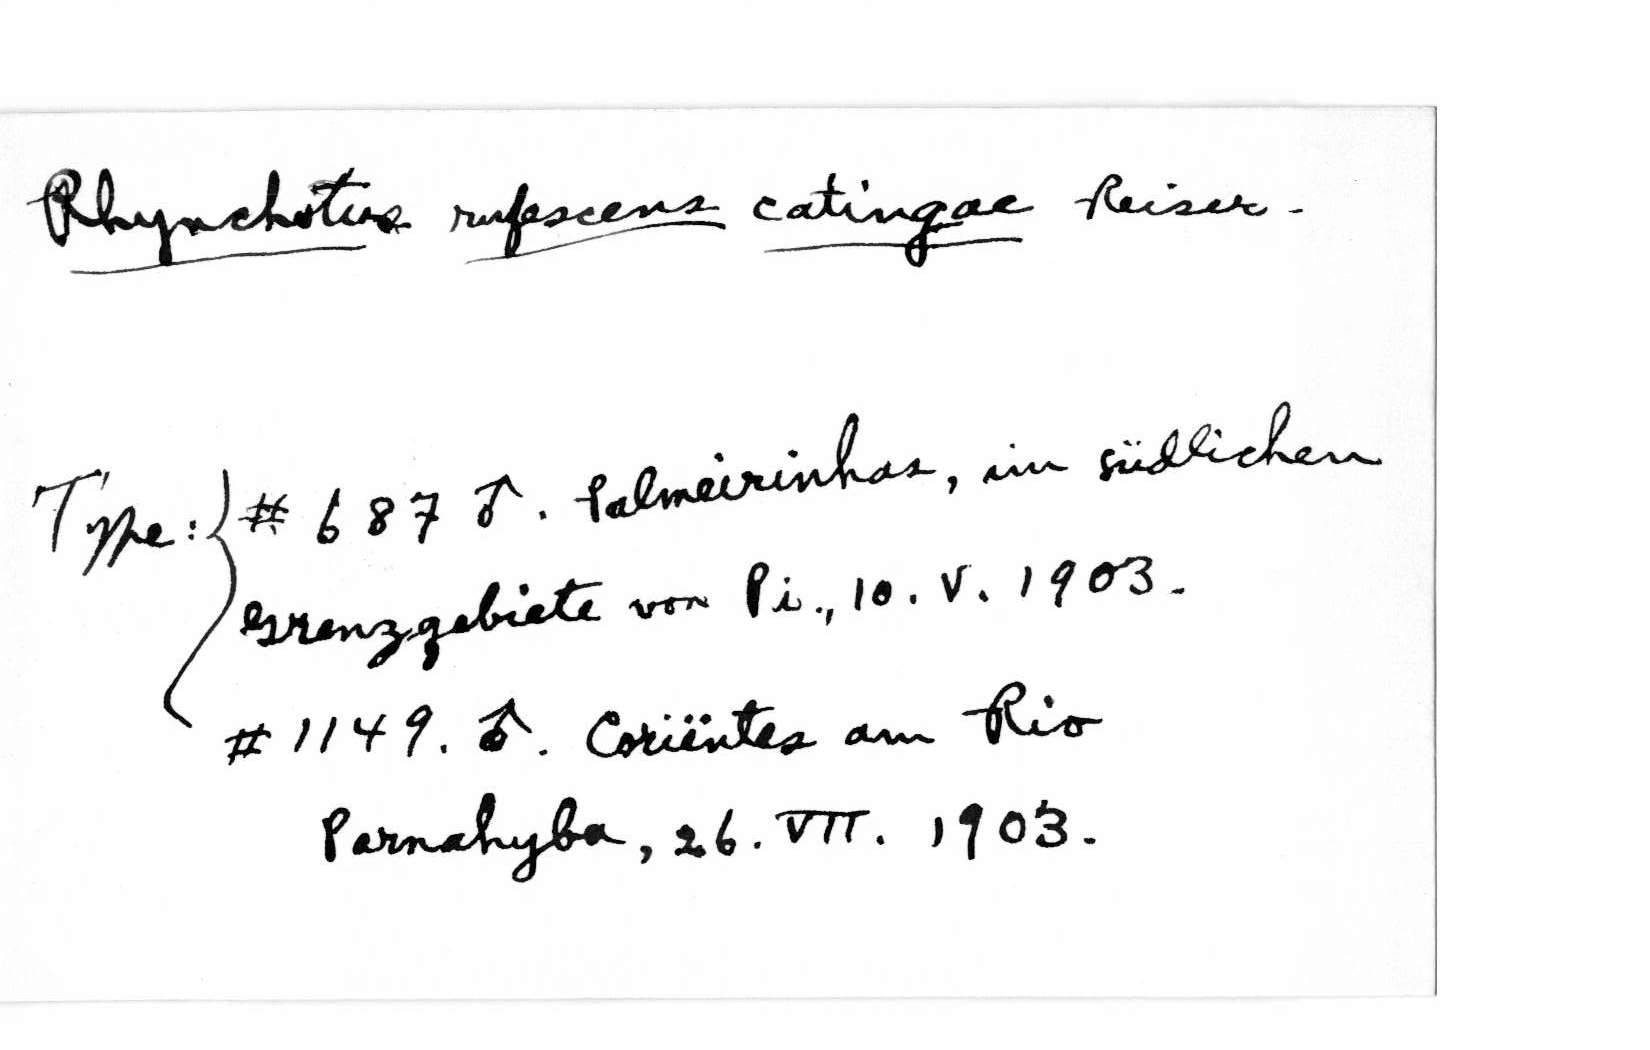 Rhynchotus rufescens catingae Reiser.
Type: # 687 ♂. Palmeirinhas, im südlichen
Grenzgebiete von Pi., 10. V. 1903.
# 1149. ♂. Coriëntes am Rio
Parnahyba, 26. VII. 1903.